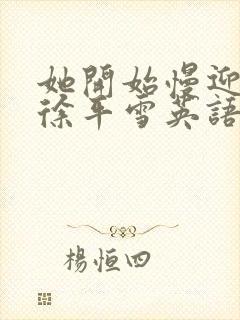 她開始慢迎
徐平雪英語
楊恒四